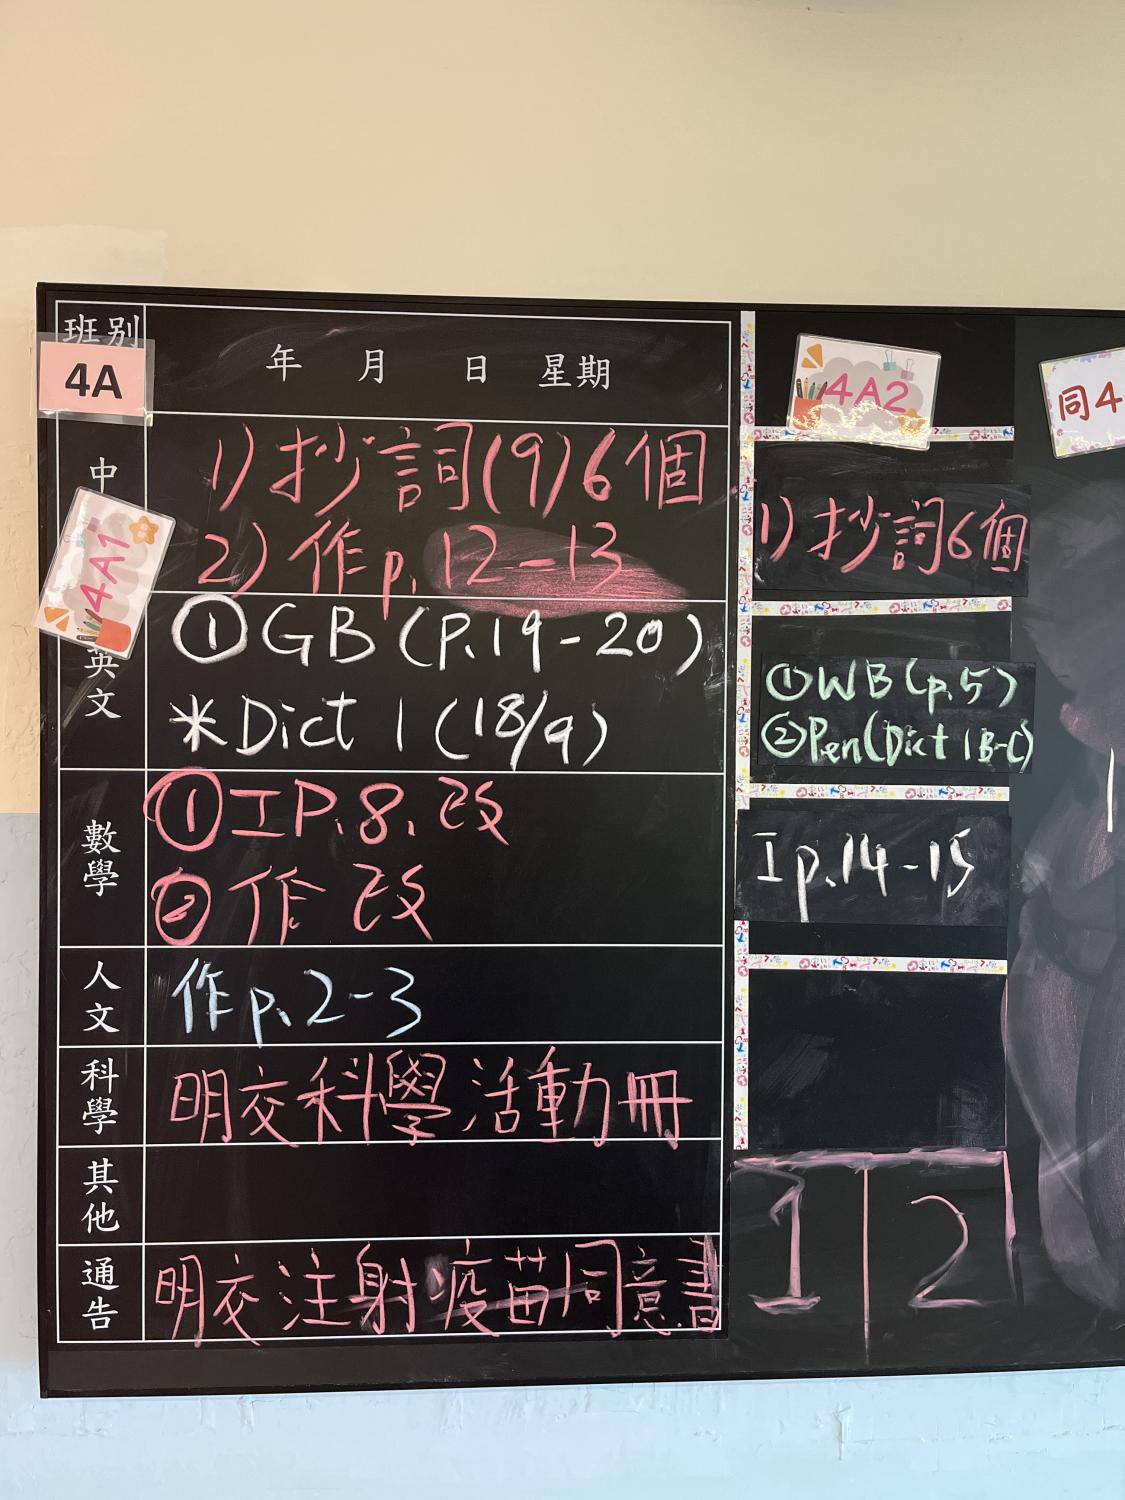 班別
4A
年 月 日 星期
4A2
同4
中
4A1
1) 抄詞(9)6個
2) 作p.12-13
1) 抄詞6個
英文
① GB (P.19-20)
*Dict 1 (18/9)
① WB (p.5)
② Pen(Dict 1B-C)
數學
① IP.8.改
② 作改
Ip.14-15
人文
作p.2-3
科學
明交科學活動冊
其他
通告
明交注射疫苗同意書
1 2